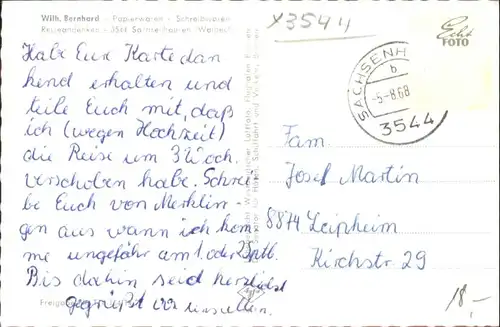 Wilh. Bernhard - Papierwaren - Schreibwaren
Reiseandenken - 3544 Sachsenhausen (Waldeck)
x3544
Echt
FOTO
SACHSENH
b
-5-8.68
3544
Habe Eure Karte dan
kend erhalten und
teile Euch mit, daß
ich (wegen Hochzeit)
die Reise um 3 Woch.
verschoben habe. Schrei
be Euch von Merklin-
gen aus wann ich kom
me ungefähr am 1. oder 2. Sptb.
Bis dahin seid herzlichst
gegrüßt von
Fam.
Josef Martin
8874 Leipheim
Kirchstr. 29
Agfa
18,-